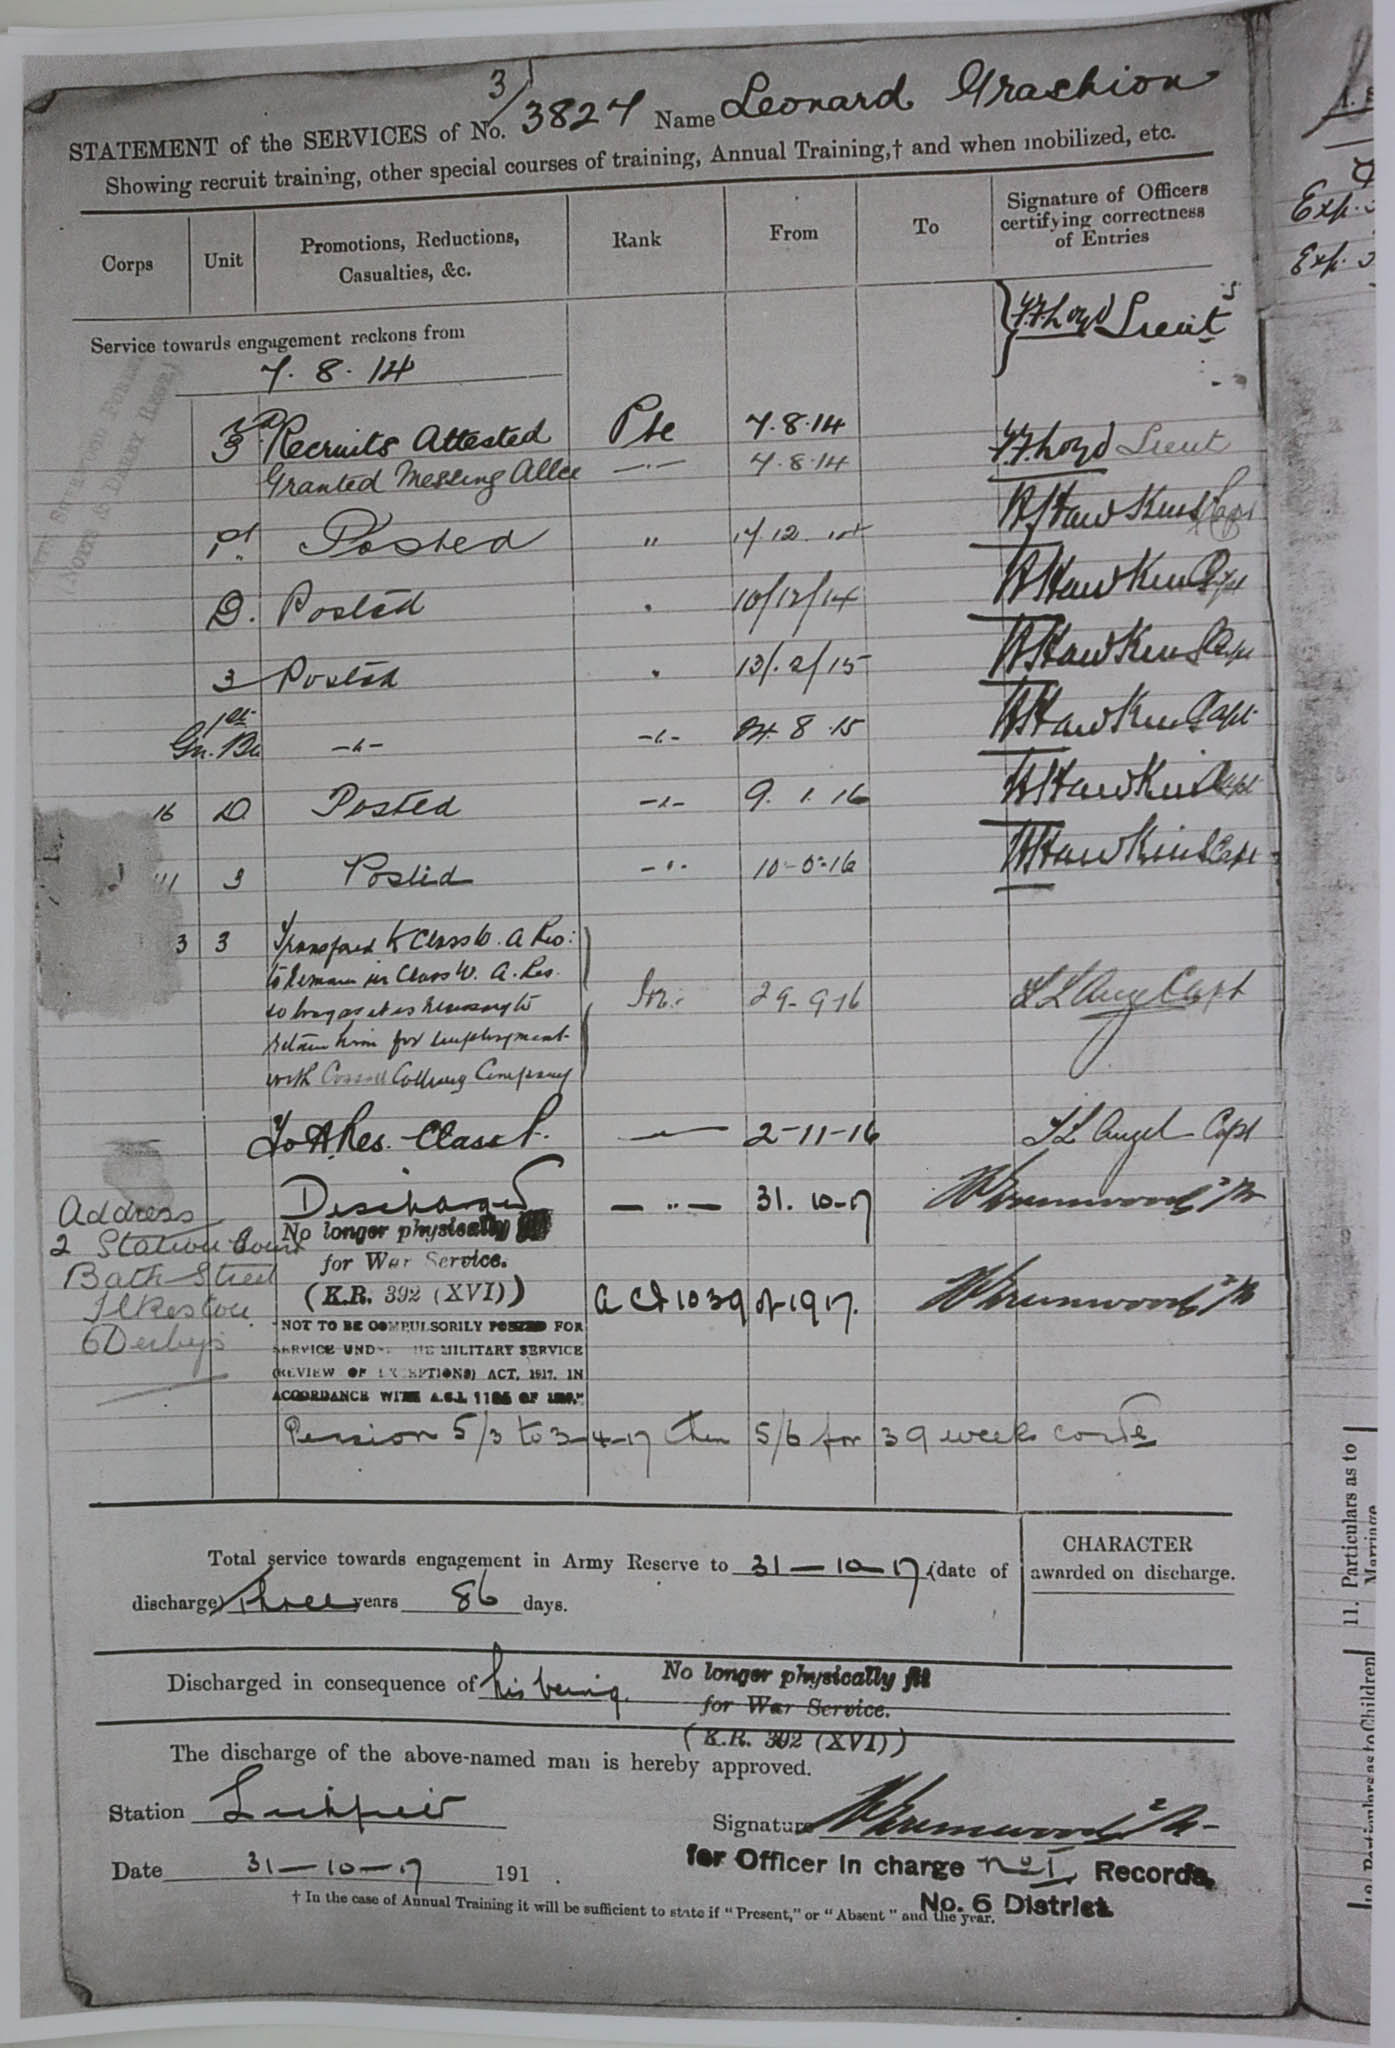 3/
STATEMENT of the SERVICES of No. 3827 Name Leonard Grashion
Showing recruit training, other special courses of training, Annual Training,† and when mobilized, etc.
Corps Unit Promotions, Reductions, Casualties, &c. Rank From To Signature of Officers certifying correctness of Entries
Service towards engagement reckons from
7. 8. 14 Lieut
3 Recruits Attested Pte 7.8.14 Lieut
Granted Messing Allce 7.8.14
1st Posted " 12 Hawkins Capt
D. Posted 10/12/14 Hawkins Capt
3 Posted 13/.2/15 Hawkins Capt
1st
Gn. Bn -"- -"- 8 15 Hawkins Capt
16 D Posted -"- 9. 1. 16 Hawkins Capt
3 Posted -"- 16 Hawkins Capt
3 3 Transferred to Class W. A Res:
to remain in Class W. A. Res.
so long as it is necessary to 29-9-16 Capt
retain him for employment
with Cossall Colliery Company
To A. Res. Class P. 2-11-16 T L Angel Capt
Discharged — " — 31. 10-17
No longer physically fit
for War Service.
(K.R. 392 (XVI)) ACI 1039 of 1917.
Address
2 Station Court
Bath Street
Ilkeston
Derbys
"NOT TO BE COMPULSORILY POSTED FOR
SERVICE UNDER THE MILITARY SERVICE
(REVIEW OF EXCEPTIONS) ACT, 1917, IN
ACCORDANCE WITH A.C.I.
Pension 5/3 to 3-4-17 then 5/6 for 39 weeks
Total service towards engagement in Army Reserve to 31-10-17 (date of
discharge) Three years 86 days.
CHARACTER
awarded on discharge.
Discharged in consequence of his being No longer physically fit
for War Service.
(K.R. 392 (XVI))
The discharge of the above-named man is hereby approved.
Station Lichfield Signature
for Officer in charge No 1 Records,
Date 31-10-17 191 .
No. 6 District.
† In the case of Annual Training it will be sufficient to state if "Present," or "Absent" and the year.
Exp.
Exp.
11. Particulars as to
Marriage
Particulars as to Children